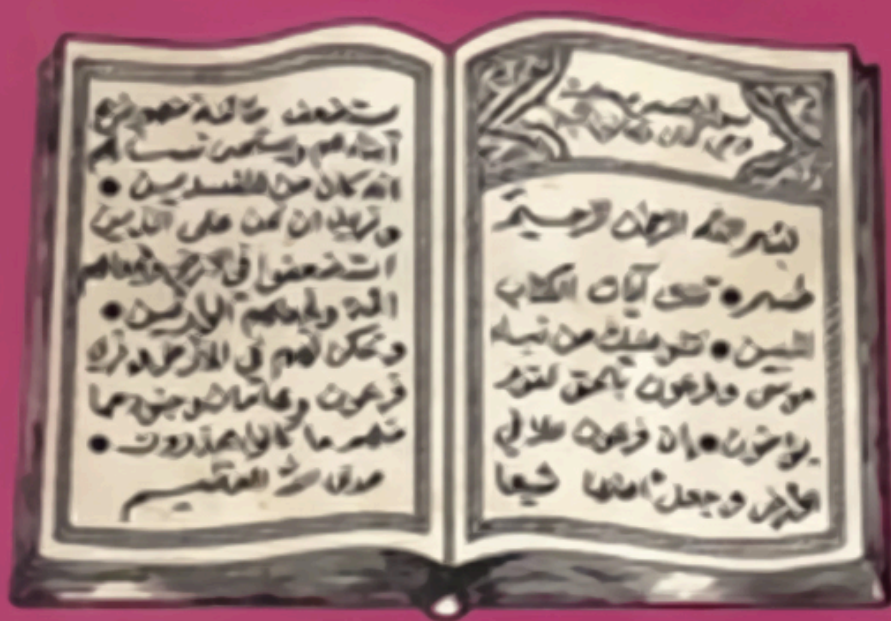 بسم الله الرحمن الرحيم
طسم • تلك آيات الكتاب
المبين • نتلو عليك من نبـاء
موسى وفرعون بالحق لقوم
يؤمنون • إن فرعون علا في
الأرض وجعل أهلها شيعا
يستضعف طائفة منهم يذبح
أبناءهم ويستحى نساءهم
انه كان من المفسدين •
ونريد ان نمن على الذين
استضعفوا في الأرض ونجعلهم
ائمة ونجعلهم الوارثين •
ونمكن لهم في الأرض ونرى
فرعون وهامان وجنودهما
منهم ما كانوا يحذرون •
صدق الله العظيم